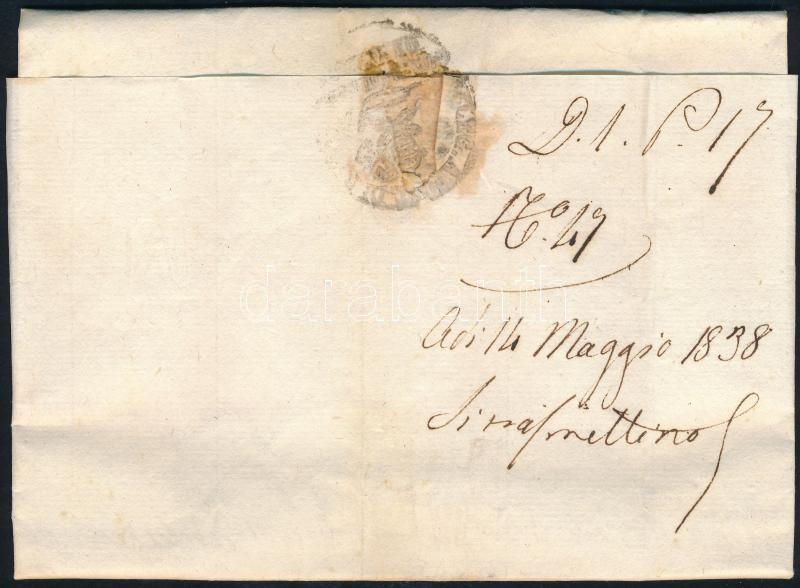 D. 1. P. 17
No. 47
Adi 14 Maggio 1838
Si trasmettino
darabanth